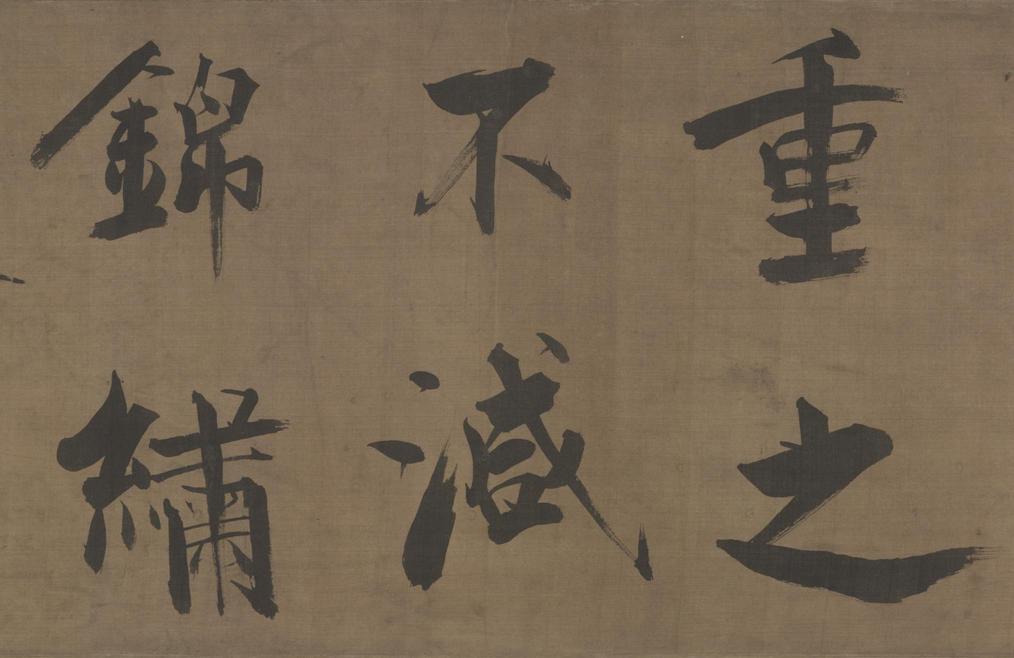 重之
不減
錦繡